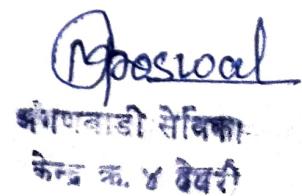 अंगणवाडी सेविका
केन्द्र क्र. ४ देवरी